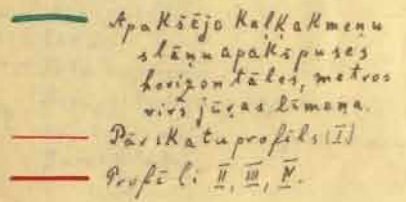 Apakšējo kaļķakmeņu
slāņu apakšpuses
horizontāles, metros
virs jūras līmeņa.
Pārskatu profils (I)
Profīli II, III, IV.